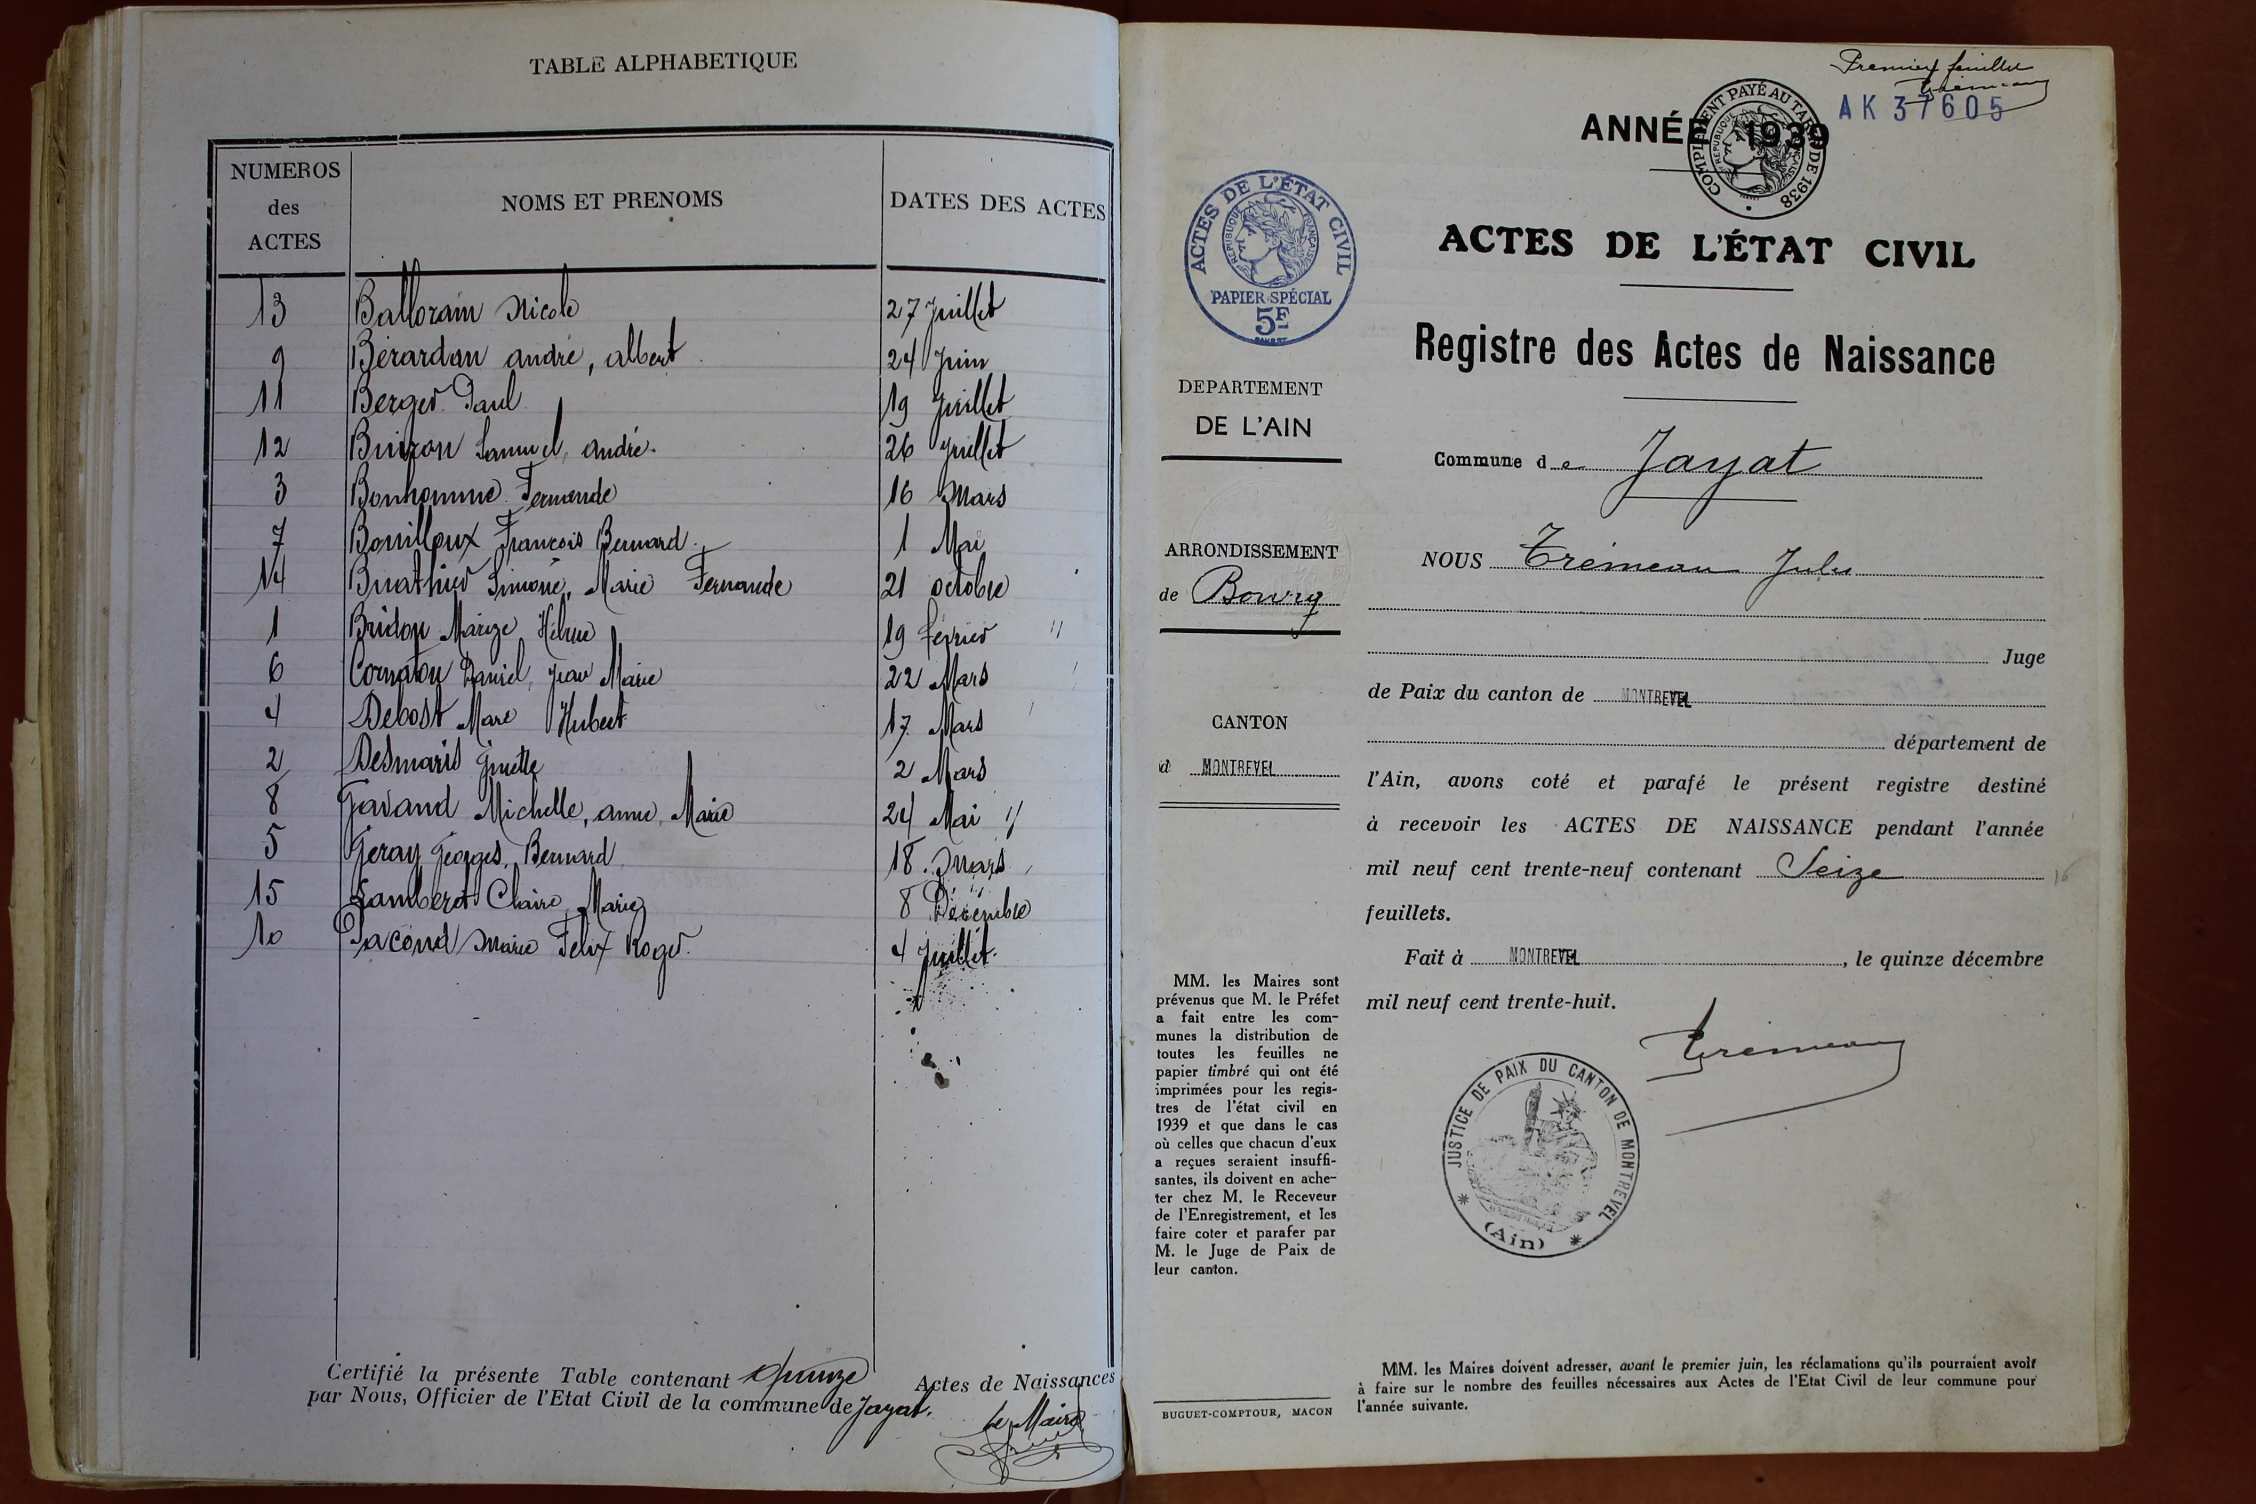 TABLE ALPHABETIQUE
NUMEROS des ACTES NOMS ET PRENOMS DATES DES ACTES
13 Balloram Nicole 27 Juillet
9 Bérardan andré, albert 24 Juin
11 Berger Paul 19 Juillet
12 Buizon Samuel, andré. 26 Juillet
3 Bonhomme Fernande 16 Mars
7 Bouilloux Francois Bernard. 1 Mai
14 Buathier Simone, Marie Fernande 21 octobre
1 Bridon Marize Hélène 19 février "
6 Cornaton Daniel, Jean Marie 22 Mars
4 Debost Marc Hubert 17 Mars
2 Desmaris Ginette 2 Mars
8 Gavand Michelle, anne, Marie 24 Mai "
5 Geray Georges, Bernard 18 Mars
15 Lambert Claire, Marie 8 Décembre
10 Pacoud Marie Felix Roger. 4 Juillet.
Certifié la présente Table contenant quinze Actes de Naissances
par Nous, Officier de l'Etat Civil de la commune de Jayat.
Le Maire
Premier feuillet
Trémeau
AK 37605
ANNÉE 1939
COMPLEMENT PAYÉ AU TARIF DE 1938
REPUBLIQUE FRANÇAISE
ACTES DE L'ÉTAT CIVIL
REPUBLIQUE FRANÇAISE
PAPIER SPÉCIAL
5F
ACTES DE L'ÉTAT CIVIL
Registre des Actes de Naissance
DEPARTEMENT
DE L'AIN
Commune de Jayat
ARRONDISSEMENT
de Bourg
CANTON
d MONTREVEL
NOUS Trémeau Jules
Juge
de Paix du canton de MONTREVEL
département de
l'Ain, avons coté et parafé le présent registre destiné
à recevoir les ACTES DE NAISSANCE pendant l'année
mil neuf cent trente-neuf contenant Seize 16
feuillets.
Fait à MONTREVEL, le quinze décembre
mil neuf cent trente-huit.
Trémeau
JUSTICE DE PAIX DU CANTON DE MONTREVEL
* (Ain) *
MM. les Maires sont
prévenus que M. le Préfet
a fait entre les com-
munes la distribution de
toutes les feuilles ne
papier timbré qui ont été
imprimées pour les regis-
tres de l'état civil en
1939 et que dans le cas
où celles que chacun d'eux
a reçues seraient insuffi-
santes, ils doivent en ache-
ter chez M. le Receveur
de l'Enregistrement, et les
faire coter et parafer par
M. le Juge de Paix de
leur canton.
BUGUET-COMPTOUR, MACON
MM. les Maires doivent adresser, avant le premier juin, les réclamations qu'ils pourraient avoir
à faire sur le nombre des feuilles nécessaires aux Actes de l'Etat Civil de leur commune pour
l'année suivante.